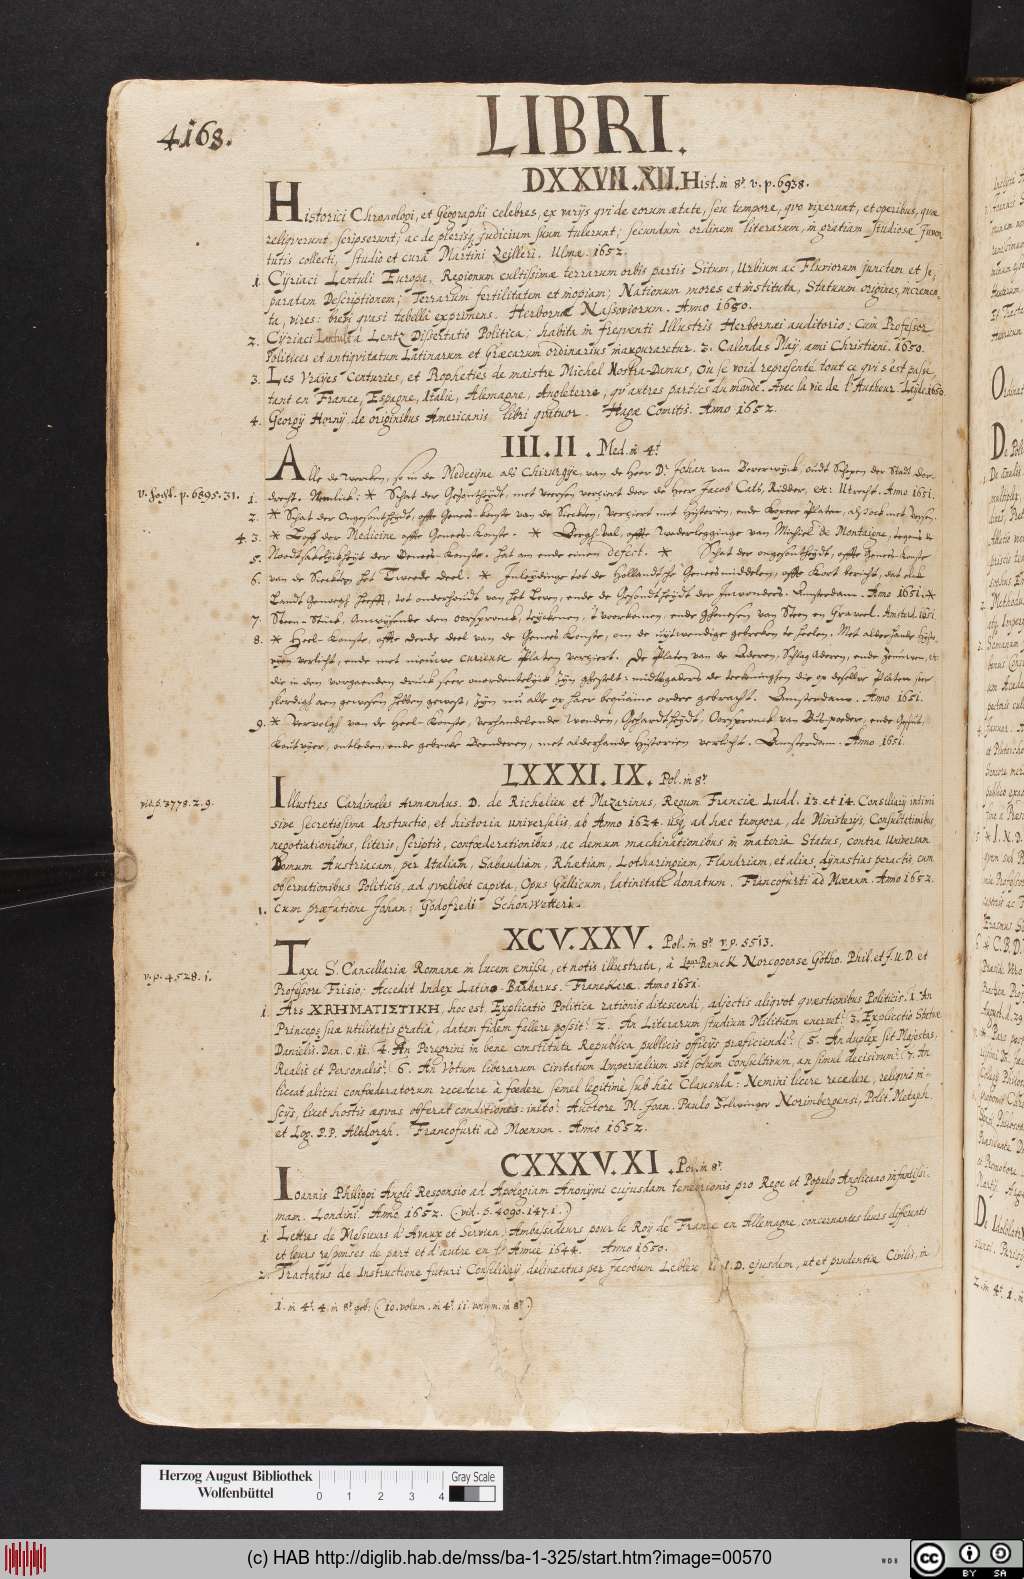 4168.
LIBRI.
DXXVII.XII. Hist. in 8º. v. p. 6938.
Historici Chronologi, et Geographi celebres, ex varijs qui de eorum ætate, seu tempore, quo vixerunt, et operibus, quæ
reliqverunt, scripserunt; ac de plerisq judicium suum tulerunt; secundum ordinem literarum, in gratiam studiosæ Juven
tutis collecti, studio et cura Martini Zeilleri. Ulmæ. 1652.
1. Cyriaci Lentuli Europa, Regionum cultissimæ terrarum orbis partis Situm, Urbium ac Fluviorum junctam et se,
paratam Descriptionem; Terrarum fertilitatem et inopiam; Nationum mores et instituta, Statuum origines, incremen-
ta, vires: brevi quasi tabella exprimens. Herbornæ Nassoviorum. Anno 1650.
2. Cyriaci Lentuli á Lentz Dissertatio Politica; habita in freqventi Illustris Herbornæi auditorio: Cum Professor
Politices et antiqvitatum Latinarum et Græcarum ordinarius inauguraretur. 3. Calendas Maÿ, anni Christiani. 1650.
3. Les Vrayes Centuries, et Propheties de maistre Michel Nostra-Damus, Ou se void representé tout ce qui s'est passé,
tant en France, Espagne, Italie, Alemagne, Angleterre, qu'autres parties du monde. Avec la vie de l'Autheur. Leyde. 1650.
4. Georgÿ Hornÿ de originibus Americanis, libri qvatuor. Hagæ Comitis. Anno 1652.
III.II. Med. in 4º
Alle de Wercken, so in de Medecyne als Chirurgye, van de Heer Dr. Johan van Beverwyck, oudt Schepen der Stadt Dor-
v. p. 6895.31. 1. drecht. Nemlick: * Schat der Gesontheydt, met veersen verciert door de Heer Jacob Cats, Ridder, &c: Utrecht. Anno 1651.
2. * Schat der Ongesontheydt, ofte Genees-konste van de Sieckten, Verciert met Historien, ende Kopere Platen, als oock met Veersen.
4. 3. * Lof der Medicine ofte Genees-Konste. * Bergh-Val, ofte Wederlegginge van Michiel de Montaigne, tegens de
5. Noodtsakelijckheyt der Genees-Konste. Hat am ende einen defect. * Schat der ongesontheydt, ofte Genees-Konste
6. van de Sieckten het Tweede deel. * Inleydinge tot de Hollandtsche Geneesmiddelen, ofte Kort bericht, dat elck
Landt genoegh heeft, tot onderhoudt van het Leven, ende de Gesondtheydt der Inwoonders. Amsterdam. Anno 1651. *
7. Steen-Stuck. Aenwysende den oorspronck, teyckenen, 't voorkomen, ende ghenesen van Steen en Graveel. Amsterd. 1651
8. * Heel-Konste, ofte derde deel van de Genees Konste, om de uytwendige gebreken te heelen. Met alderhande Histo-
rijen verlicht, ende met nieuwe curieuse Platen verciert. De Platen van de Aderen, Slag Aderen, ende Zenuwen, &c
die in den voorgaenden druck seer onordentelijck zijn ghestelt: midtsgaders de teeckeninghen die op deselve Platen seer
slordigh aen gewesen hebben geweest, zijn nu alle op haer bequame ordre gebracht. Amsterdam. Anno 1651.
9. * Vervolgh van de Heel-Konste, verhandelende Wonden, Gescheurtheydt, Oorspronck van Bus-poeder, ende Geschut,
Kout vyer, ontleden, ende gebroke Beenderen, met alderhande Historien verlicht. Amsterdam. Anno 1651.
LXXXI.IX. Pol. in 8º
vid. p. 3778.2.9. Illustres Cardinales Armandus. D. de Richelieu et Mazarinus, Regum Franciæ Ludd. 13. et 14. Consiliarij intimi
sive secretissima Instructio, et historia universalis, ab Anno 1624. usq ad hæc tempora, de Ministerÿs, Consuetudinibus,
negotiationibus, literis, scriptis, confoederationibus, ac demum machinationibus in materia Status, contra Universam
Domum Austriacam, per Italiam, Sabaudiam, Rhætiam, Lotharingiam, Flandriam, et alias dynastias peractis cum
observationibus Politicis, ad qvælibet capita, Opus Gallicum, latinitate donatum. Francofurti ad Moenum. Anno 1652.
1. cum præfatione Johan: Godofredi Schönwetteri.
XCV.XXV. Pol. in 8º. v. p. 5513.
Taxa S. Cancellariæ Romanæ in lucem emissa, et notis illustrata, à Laur. Banck Norcopense Gotho. Phil. et J. U. D. et
v. p. 4528.1. Professore Frisio; Accedit Index Latino-Barbarus. Franekaræ. Anno 1651.
1. Ars ΧΡΗΜΑΤΙΣΤΙΚΗ, hoc est. Explicatio Politica rationis ditescendi, adjectis aliqvot qvæstionibus Politicis. 1. An
Princeps suæ utilitatis gratia, datam fidem fallere possit? 2. An Literarum studium Militiam enervet? 3. Explicatio Statuæ
Danielis. Dan. C. ii. 4. An Peregrini in bene constituta Republica publicis officijs præficiendi? 5. An duplex sit Majestas,
Realis et Personalis? 6. An Votum liberarum Civitatum Imperialium sit solum consultivum, an simul decisivum? 7. An
liceat alicui confoederatorum recedere à foedere semel legitime sub hac Clausula: Nemini licere recedere, reliqvis in-
scÿs, licet hostis æqvas offerat conditiones: inito? Auctore M. Joan. Paulo Felwinger Norimbergensi, Polit. Metaph.
et Log. P. P. Altdorph. Francofurti ad Moenum. Anno 1652.
CXXXV.XI. Pol. in 8º.
Ioannis Philippi Angli Responsio ad Apologiam Anonymi cujusdam tenebrionis pro Rege et Populo Anglicano infantissi-
mam. Londini. Anno 1652. (vid. p. 4090.147.1.)
1. Lettres de Messieurs d'Avaux et Servien, Ambassadeurs pour le Roy de France en Allemagne, concernantes leurs differents
et leurs responses de part et d'autre en l'Annee 1644. Anno 1650.
2. Tractatus de Instructione futuri Consiliarij delineatus per Jacobum Lebleu U. J. D. ejusdem, ut et prudentiæ Civilis, in
1. in 4º. 4. in 8º. geb. (10. volum. in 4º. 11. volum. in 8º.)
Herzog August Bibliothek
Wolfenbüttel
0 1 2 3 4
Gray Scale
(c) HAB http://diglib.hab.de/mss/ba-1-325/start.htm?image=00570
WDB
cc BY SA